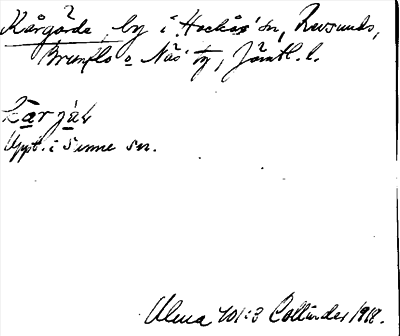 Kårgärde, by i Hackås sn, Revsunds,
Brunflo o Näs tg, Jämtl. l.
Uppt. i Sunne sn.
Ulma 401:3 Collinder 1918.